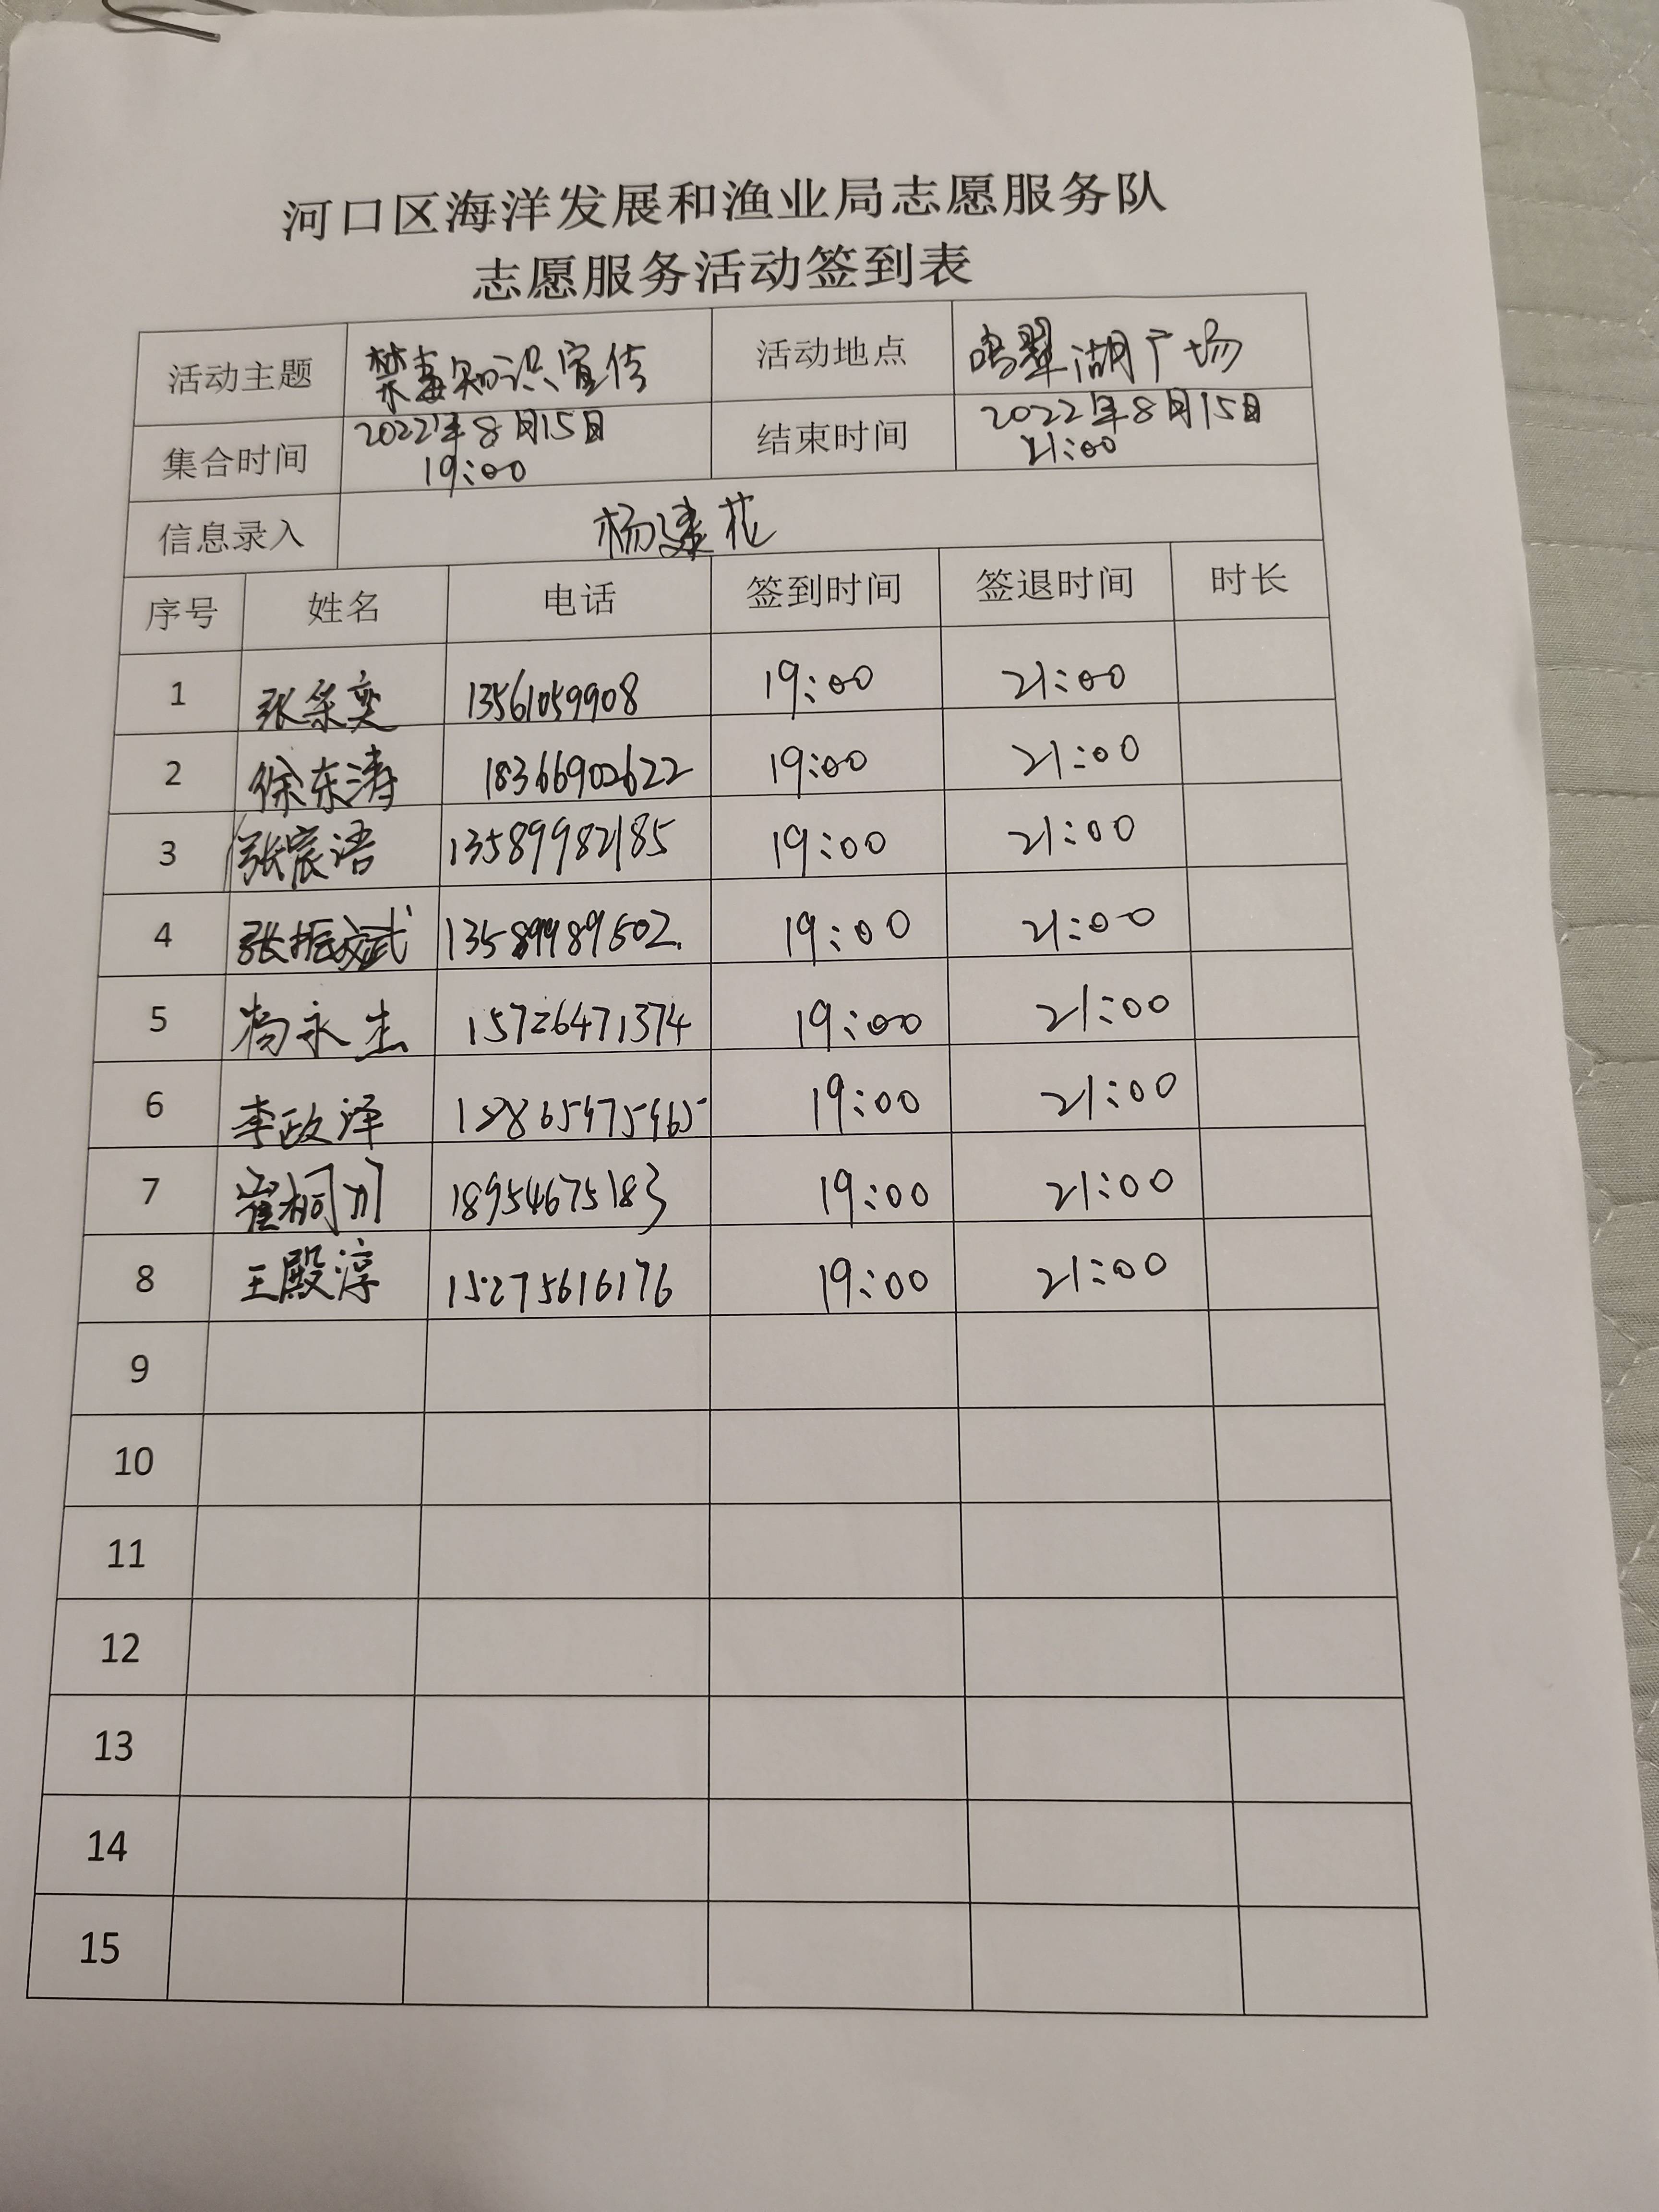 河口区海洋发展和渔业局志愿服务队
志愿服务活动签到表
活动主题 禁毒知识宣传 活动地点 鸣翠湖广场
集合时间 2022年8月15日 19:00 结束时间 2022年8月15日 21:00
信息录入 杨建花
序号 姓名 电话 签到时间 签退时间 时长
1 张奕 13561059908 19:00 21:00
2 徐东涛 18366902622 19:00 21:00
3 张宸语 13589982185 19:00 21:00
4 张振斌 13589989602 19:00 21:00
5 杨永杰 15726471374 19:00 21:00
6 李政泽 19:00 21:00
7 崔桐川 18954675183 19:00 21:00
8 王殿淳 15275616176 19:00 21:00
9
10
11
12
13
14
15